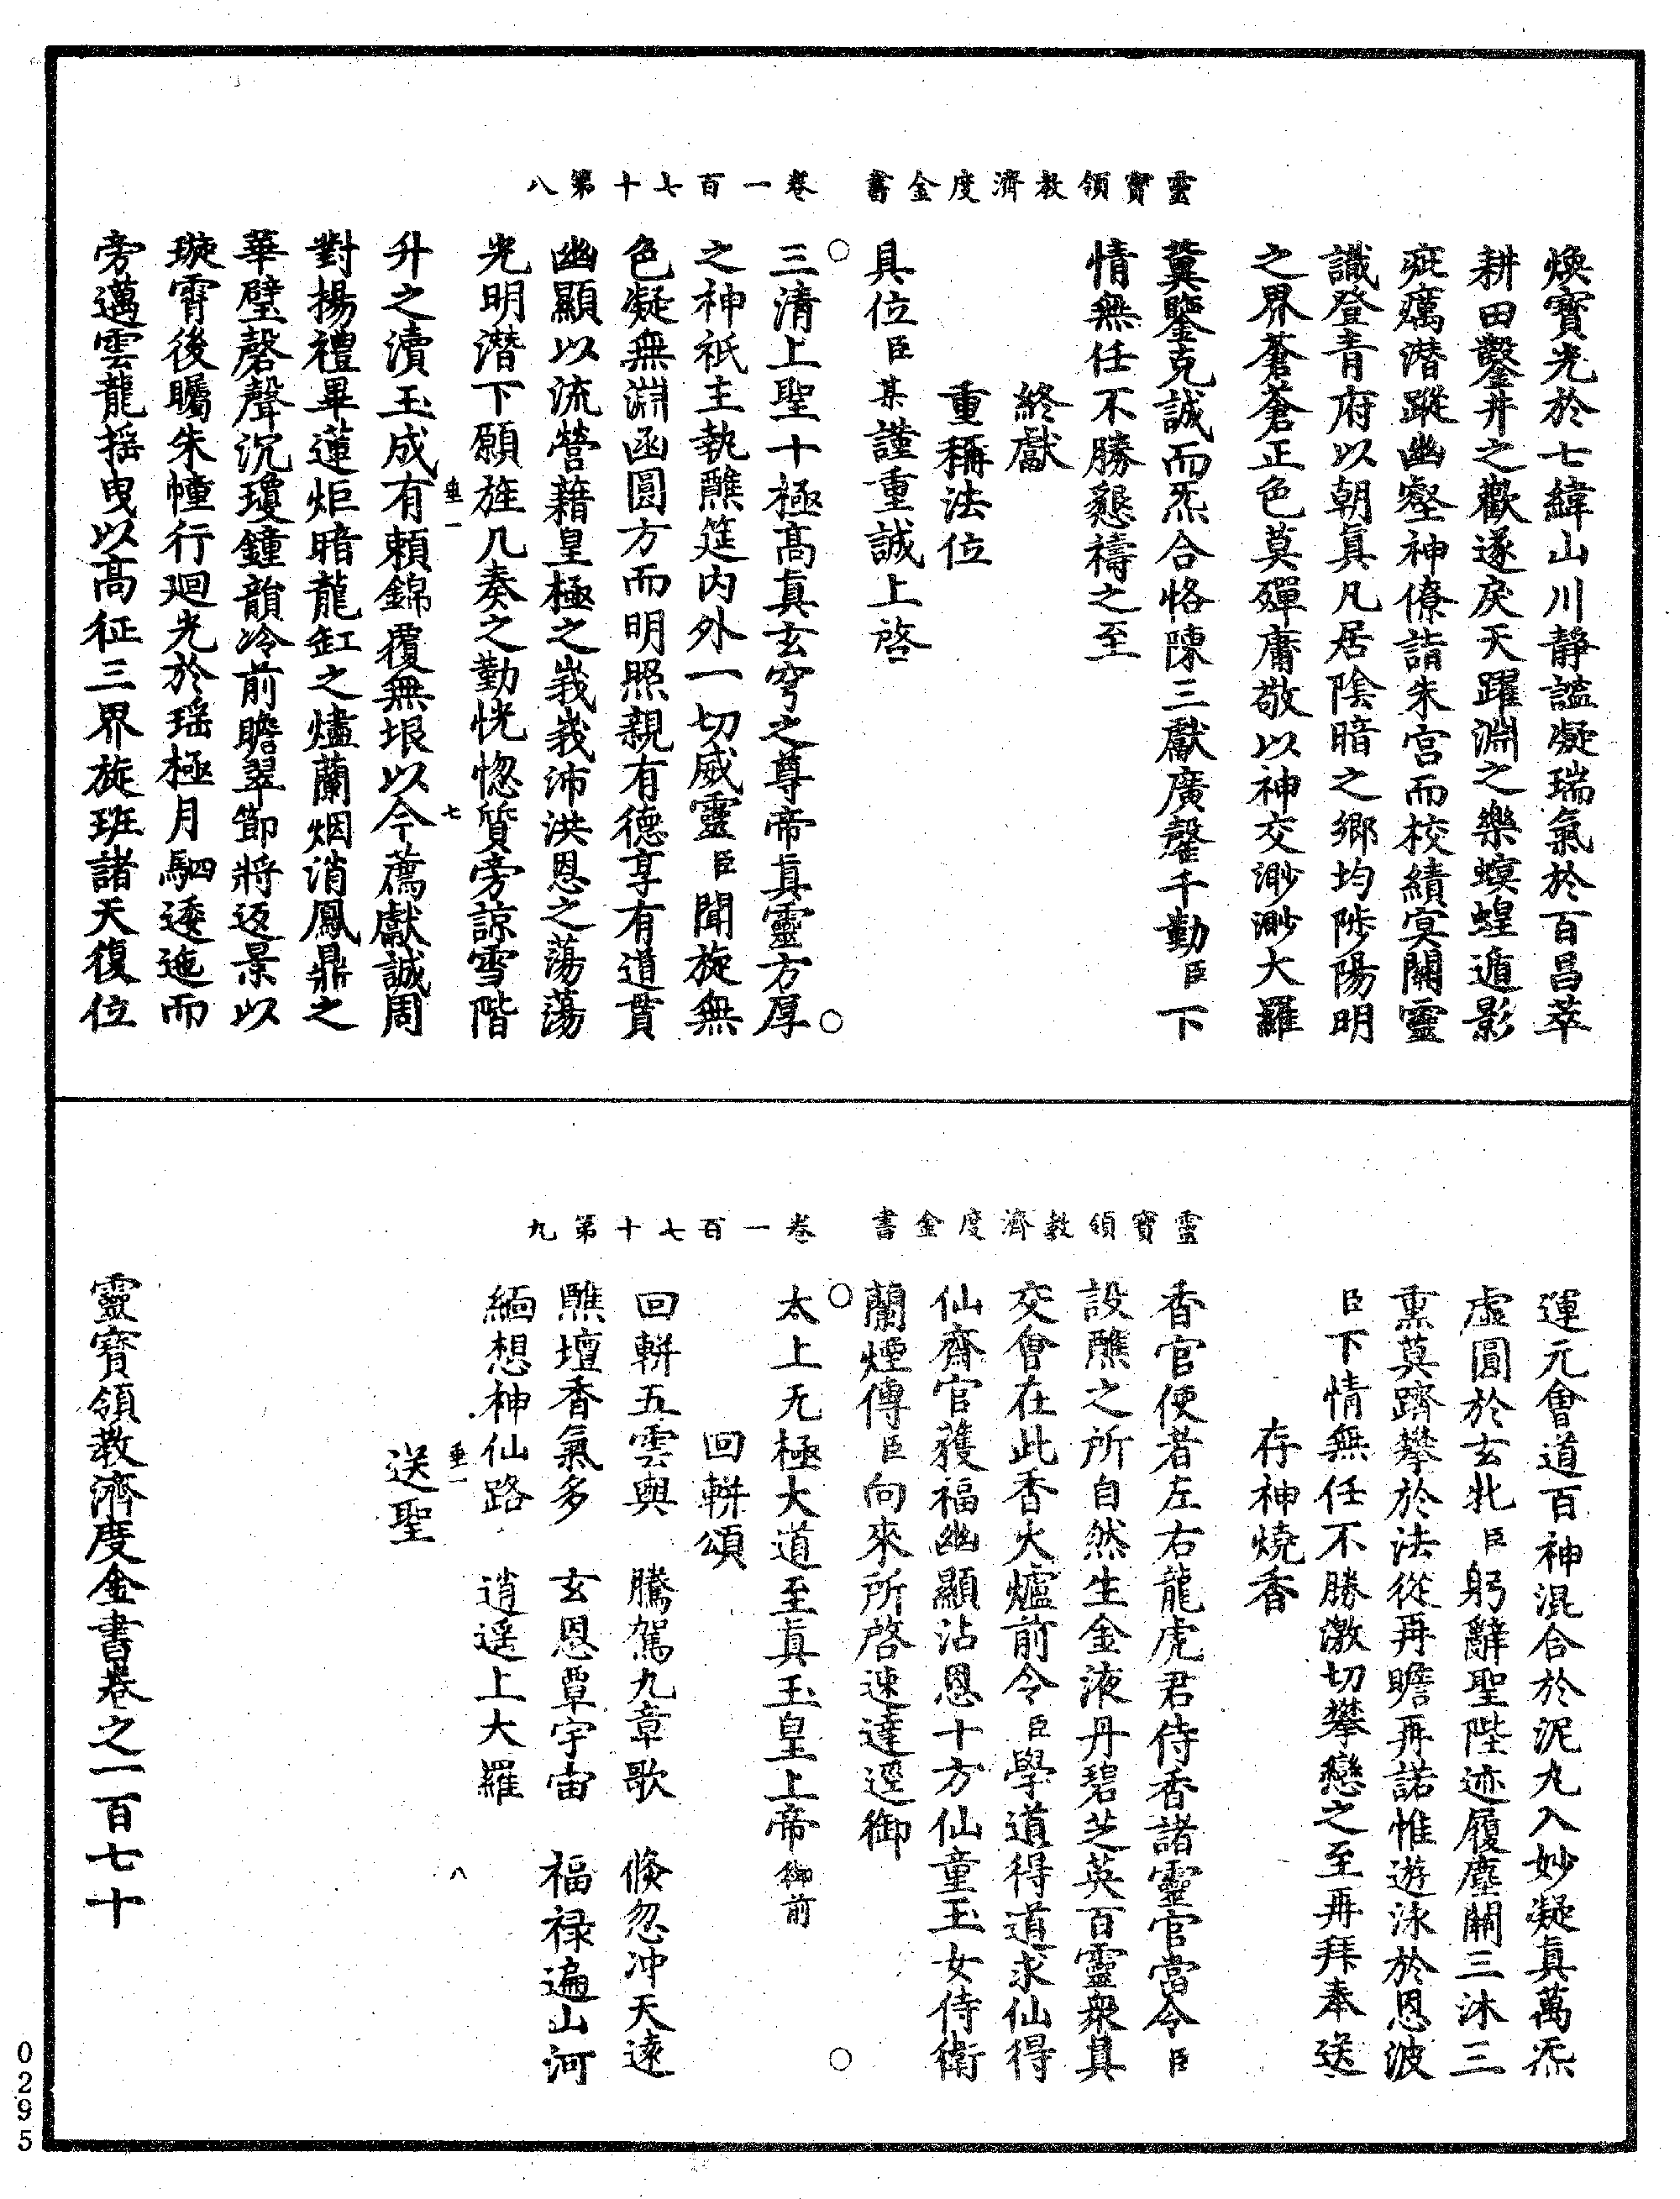 靈寶領教濟度金書　卷一百七十第八
煥寶光於七緯山川靜謐凝瑞氣於百昌萃
耕田鑿井之歡遂戾天躍淵之樂螟蝗遁影
疵癘潛蹤幽壑神僚詣朱宮而校績冥關靈
識登青府以朝真凡居陰暗之鄉均陟陽明
之界蒼蒼正色莫殫庸敬以神交渺渺大羅
冀鑒克誠而炁合恪陳三獻廣罄千勤臣下
情無任不勝懇禱之至
終獻
重稱法位
具位臣某謹重誠上啓
三清上聖十極高真玄穹之尊帝真靈方厚
之神祇主執醮筵內外一切威靈臣聞旋無
色凝無淵函圓方而明照親有德享有道貫
幽顯以流營藉皇極之峩峩沛洪恩之蕩蕩
光明潛下願旌几奏之勤恍惚質旁諒雪階
升之瀆玉成有賴錦覆無垠以今薦獻誠周
垂一　七
對揚禮畢蓮炬暗龍缸之燼蘭烟消鳳鼎之
華璧磬聲沉瓊鐘韻冷前瞻翠節將返景以
璇霄後矚朱幢行迴光於瑤極月駟逶迤而
旁邁雲龍搖曳以高征三界旋班諸天復位
靈寶領教濟度金書　卷一百七十第九
運元會道百神混合於泥丸入妙凝真萬炁
虛圓於玄北臣躬辭聖陛迹履塵關三沐三
熏莫躋攀於法從再瞻再諾惟遊泳於恩波
臣下情無任不勝激切攀戀之至再拜奉送
存神燒香
香官使者左右龍虎君侍香諸靈官當今臣
設醮之所自然生金液丹碧芝英百靈衆真
交會在此香火爐前令臣學道得道求仙得
仙齋官獲福幽顯沾恩十方仙童玉女侍衛
蘭煙傳臣向來所啓速達逕御
太上无極大道至真玉皇上帝御前
回軿頌
回軿五雲輿　騰駕九章歌　倏忽冲天遠
醮壇香氣多　玄恩覃宇宙　福祿遍山河
緬想神仙路　逍遥上大羅
垂一　八
送聖
靈寶領教濟度金書卷之一百七十
0295